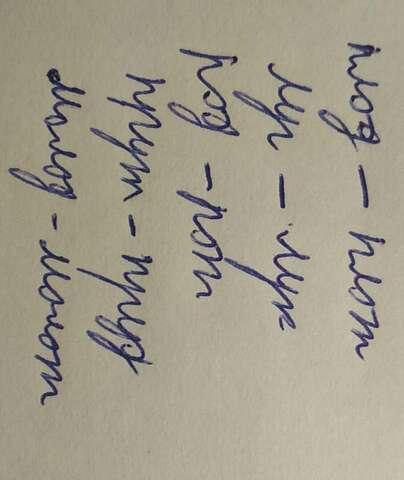 плод – плот
луг – лук
род – рот
прут – пруд
молод – молот